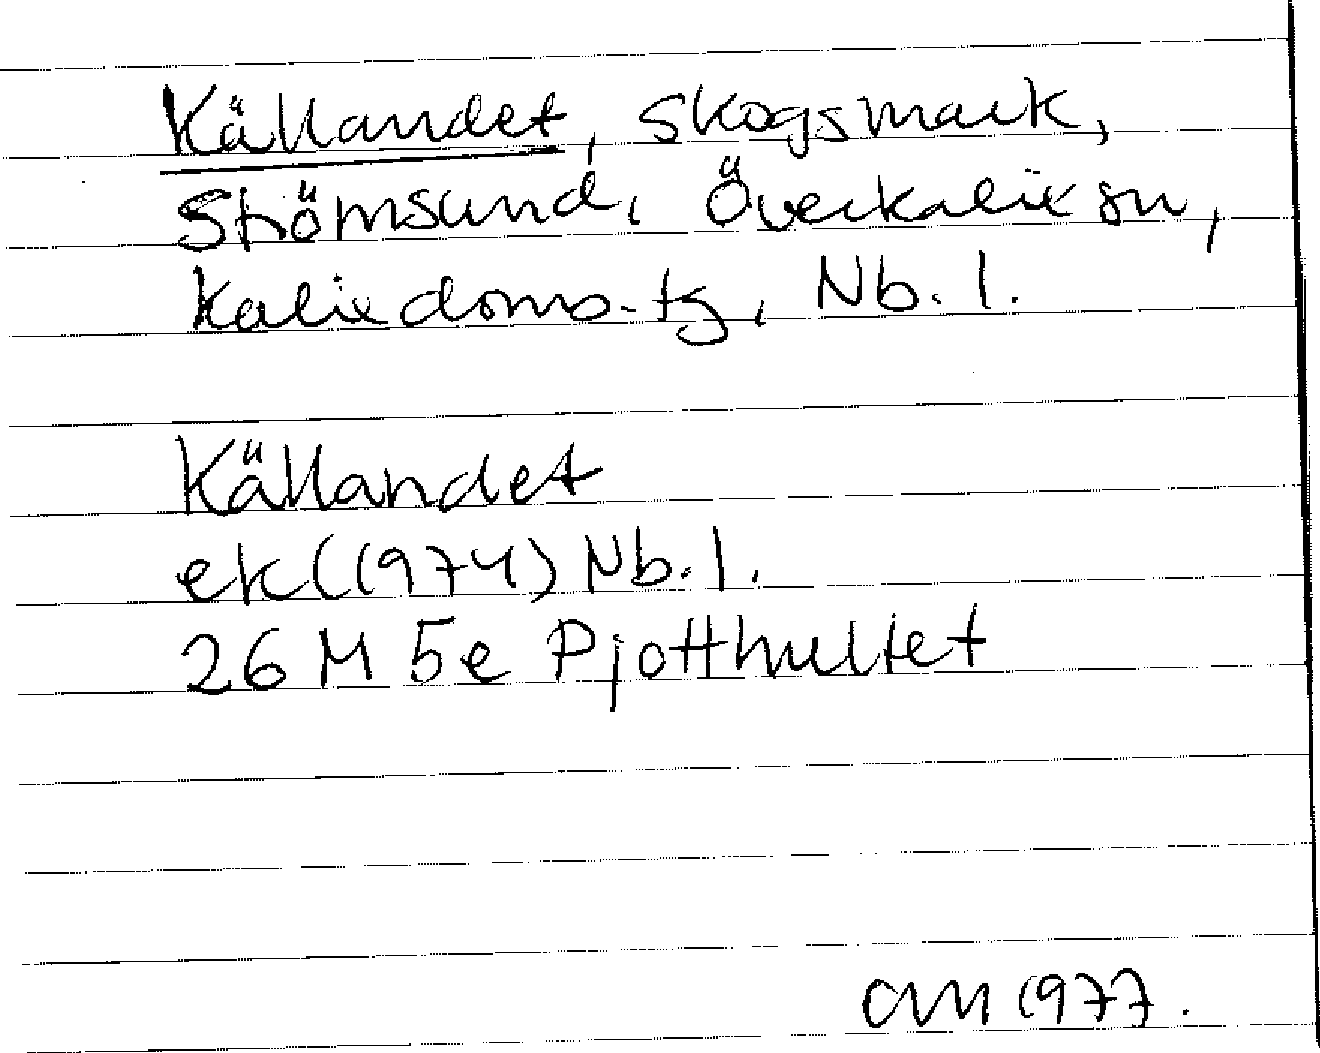 Källandet, skogsmark,
Strömsund, Överkalix sn,
Kalix doms.tg, Nb. l.
Källandet
ek (1974) Nb. l.
26 M 5e Pjotthultet
OM 1977.